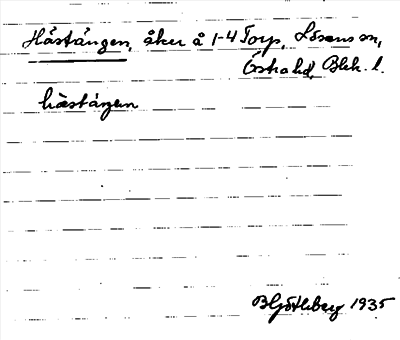 Hästängen, åker å 1-4 Torp, Lösens sn,
Östra hd, Blek. l.
hästäŋen
B Götlberg 1935